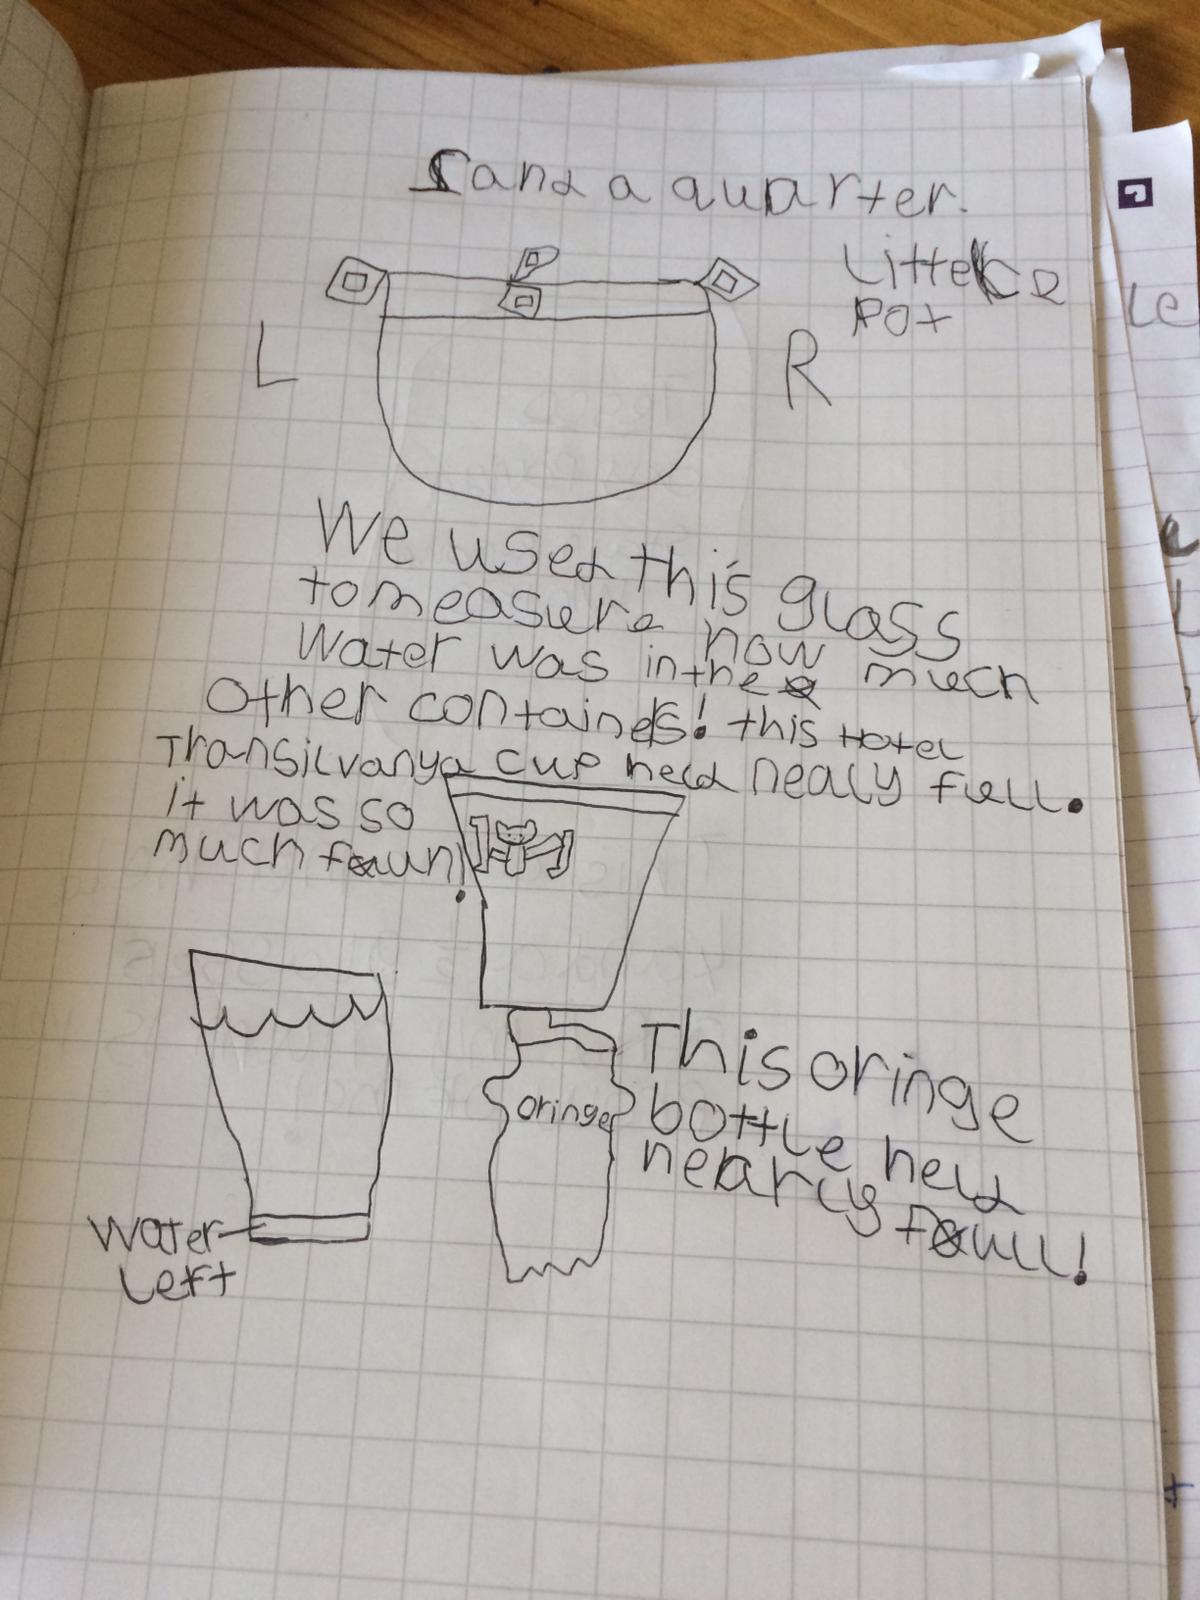 and a quarter.
Litte
pot
L
R
We used this glass
to measure how much
water was in the
other containers! this Hotel
Transilvanya cup held nealy full.
it was so
much fun!
This oringe
oringe
bottle held
nearly full!
water
left